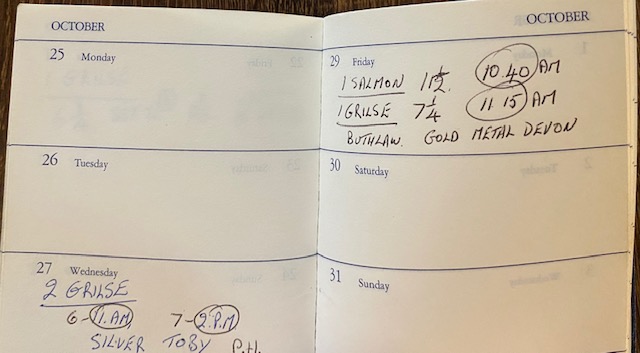 OCTOBER
25 Monday
26 Tuesday
27 Wednesday
2 GRILSE
6 - 11. AM, 7 - 2. P.M
SILVER TOBY P.H.
OCTOBER
29 Friday
1 SALMON 11 1/2. 10.40 AM
1 GRILSE 7 1/4 11 15 AM
BUTHLAW. GOLD METAL DEVON
30 Saturday
31 Sunday